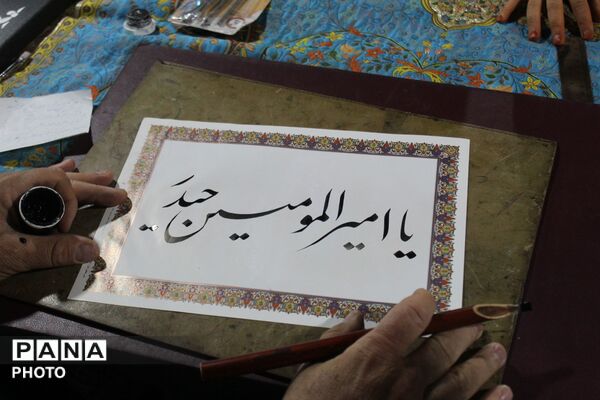 یا امیرالمومنین حیدر
PANA
PHOTO